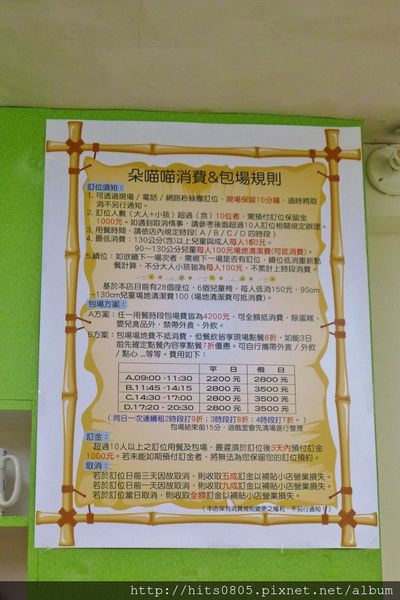 朵喵喵消費&包場規則
訂位須知：
1. 可透過現場/電話/網路粉絲團訂位，現場保留10分鐘，過時將取
消不另行通知。
2. 訂位人數(大人+小孩)超過(含)10位者，需預付訂位保留金
1000元。如遇到取消情事，請參考後面超過10人訂位相關規定辦理。
3. 用餐時間：請依店內規定時段(A/B/C/D四時段)
4. 最低消費：130公分(含)以上兒童與成人每人150元。
90~130公分兒童每人100元場地清潔費(可抵消費)。
5. 續位：如欲續下一場次者，需視下一場是否有訂位，續位低消重新點
餐計算，不分大人小孩皆為每人100元，不累計上時段消費。
基於本店目前有28個座位，6個兒童椅，每人低消150元，90cm
~130cm兒童場地清潔費100(場地清潔費可抵消費)。
包場方案：
A方案：任一用餐時段包場費皆為4200元，可全額抵消費，除蛋糕
嬰兒食品外，禁帶外食、外飲。
B方案：包場場地費不抵消費，但餐飲皆享現場點餐8折，如能3日
前先確定點餐內容享點餐7折優惠。可自行攜帶外食/外飲
/點心...等等。費用如下：
平 日 假 日
A.09:00 -11:30 2200 元 2800 元
B.11:45 -14:15 2800 元 3500 元
C.14:30 -17:00 2800 元 3500 元
D.17:20 -20:30 2800 元 3500 元
(同日一次連續租2時段打9折；3時段打8折；4時段打7折。)
包場結束前15分，遊戲室會先清場進行整理
訂金：
超過10人以上之訂位用餐及包場，最遲須於訂位後3天內預付訂金
1000元。若未能如期預付訂金者，將無法為您保留您的訂位預約。
取消：
若於訂位日前三天因故取消，則收取五成訂金以補貼小店營業損失。
若於訂位日前一天因故取消，則收取九成訂金以補貼小店營業損失。
若於訂位當日取消，則收取全額訂金以補貼小店營業損失。
(本店保有消費規則變更之權利，不另行通知！)
http://hits0805.pixnet.net/album